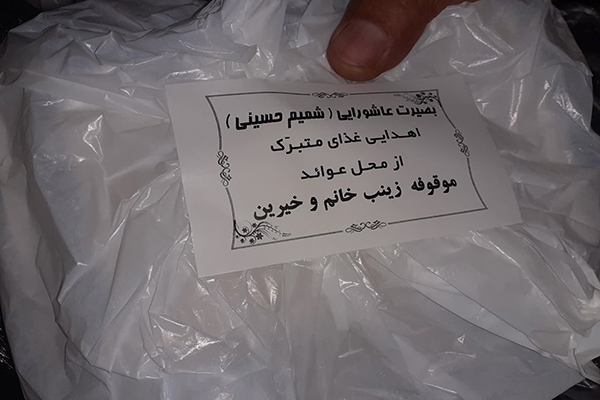 بصیرت عاشورایی ( شمیم حسینی )
اهدایی غذای متبرّک
از محل عوائد
موقوفه زینب خانم و خیرین